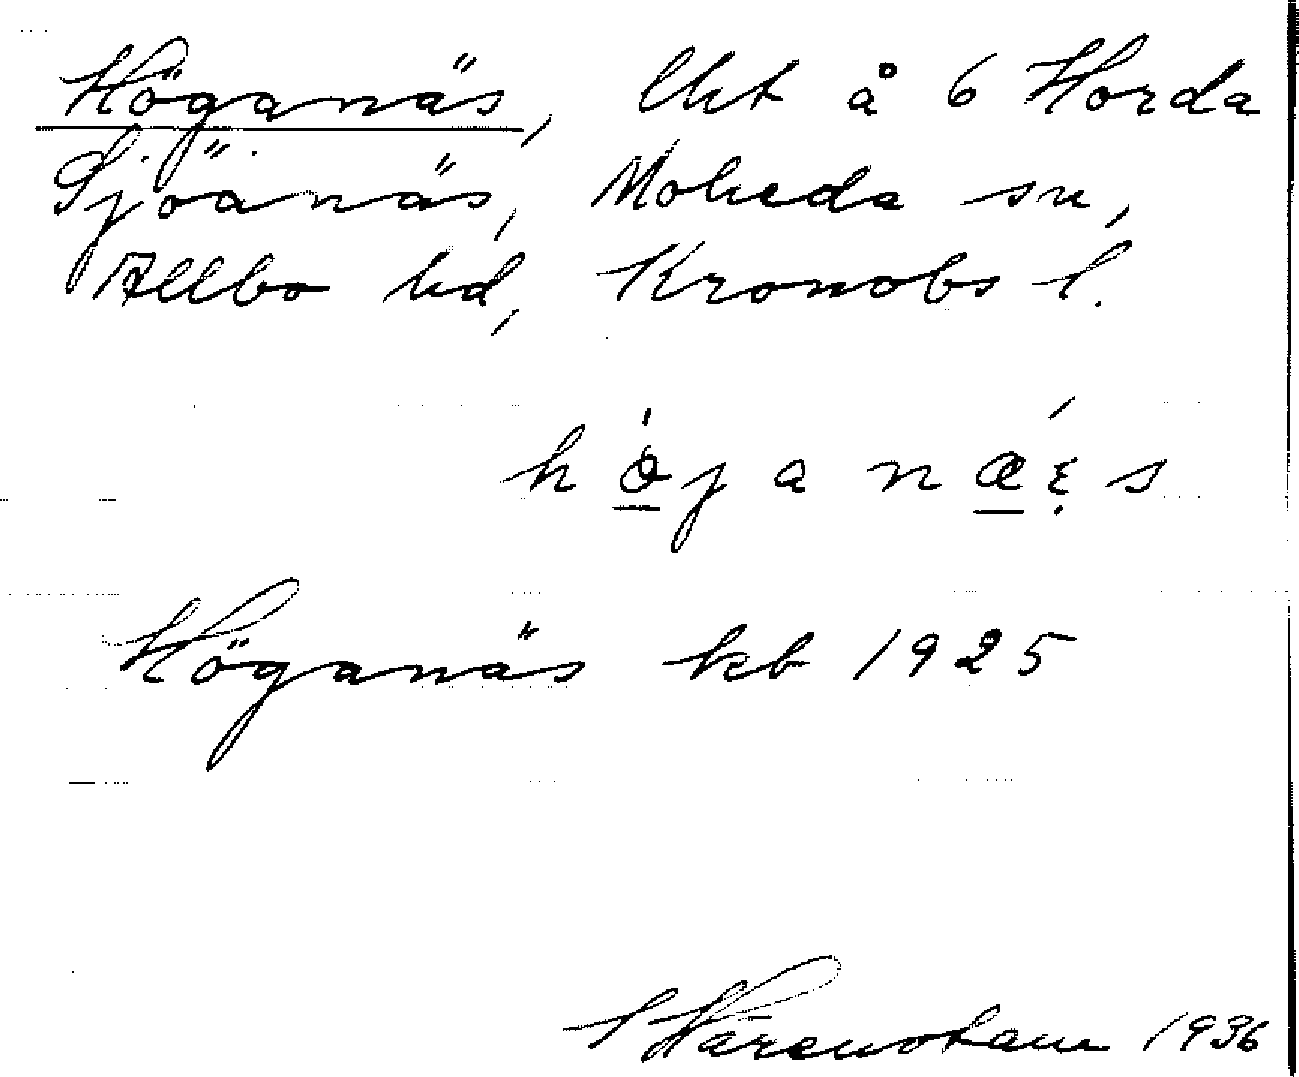 Höganäs, lht å 6 Horda
Sjöanäs, Moheda sn,
Allbo hd, Kronobs l.
höjanæs
Höganäs kb 1925
1936